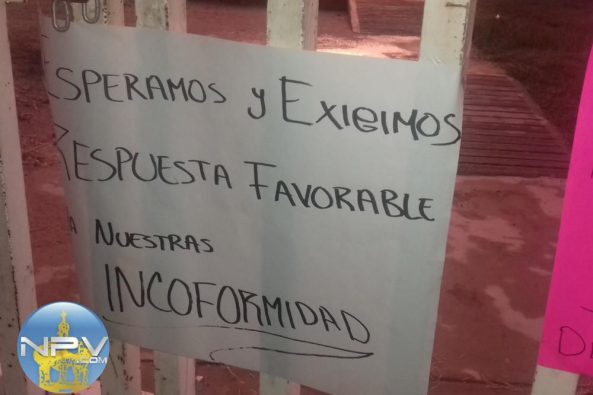 ESPERAMOS y EXIGIMOS
RESPUESTA FAVORABLE
A NUESTRAS
INCOFORMIDAD
NPV
.COM
D